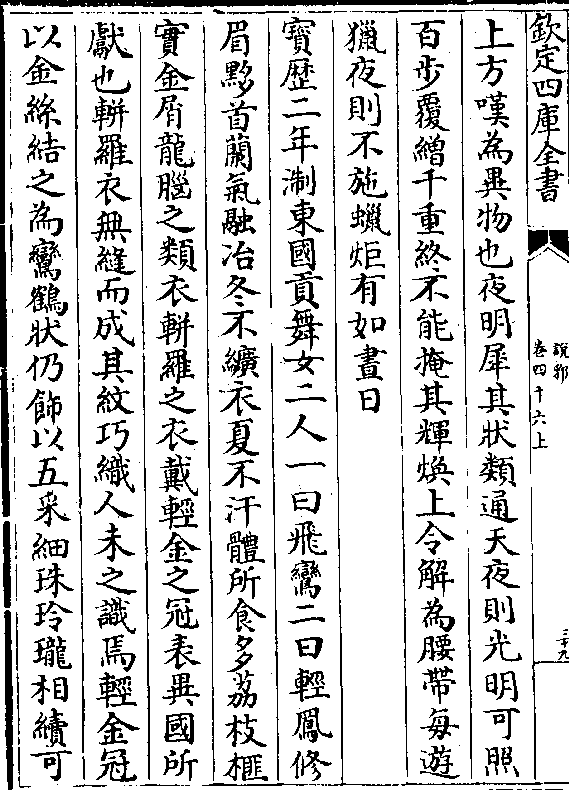 欽定四庫全書
說郛
卷四十六上
二十九
上方嘆為異物也夜明犀其狀類通天夜則光明可照
百步覆繒千重終不能掩其輝煥上令解為腰帶每遊
獵夜則不施蠟炬有如晝日
寶歷二年淛東國貢舞女二人一曰飛鸞二曰輕鳳修
眉黟首蘭氣融冶冬不纊衣夏不汗體所食多荔枝榧
實金屑龍腦之類衣軿羅之衣戴輕金之冠表異國所
獻也軿羅衣無縫而成其紋巧織人未之識焉輕金冠
以金絲結之為鸞鶴狀仍飾以五采細珠玲瓏相續可